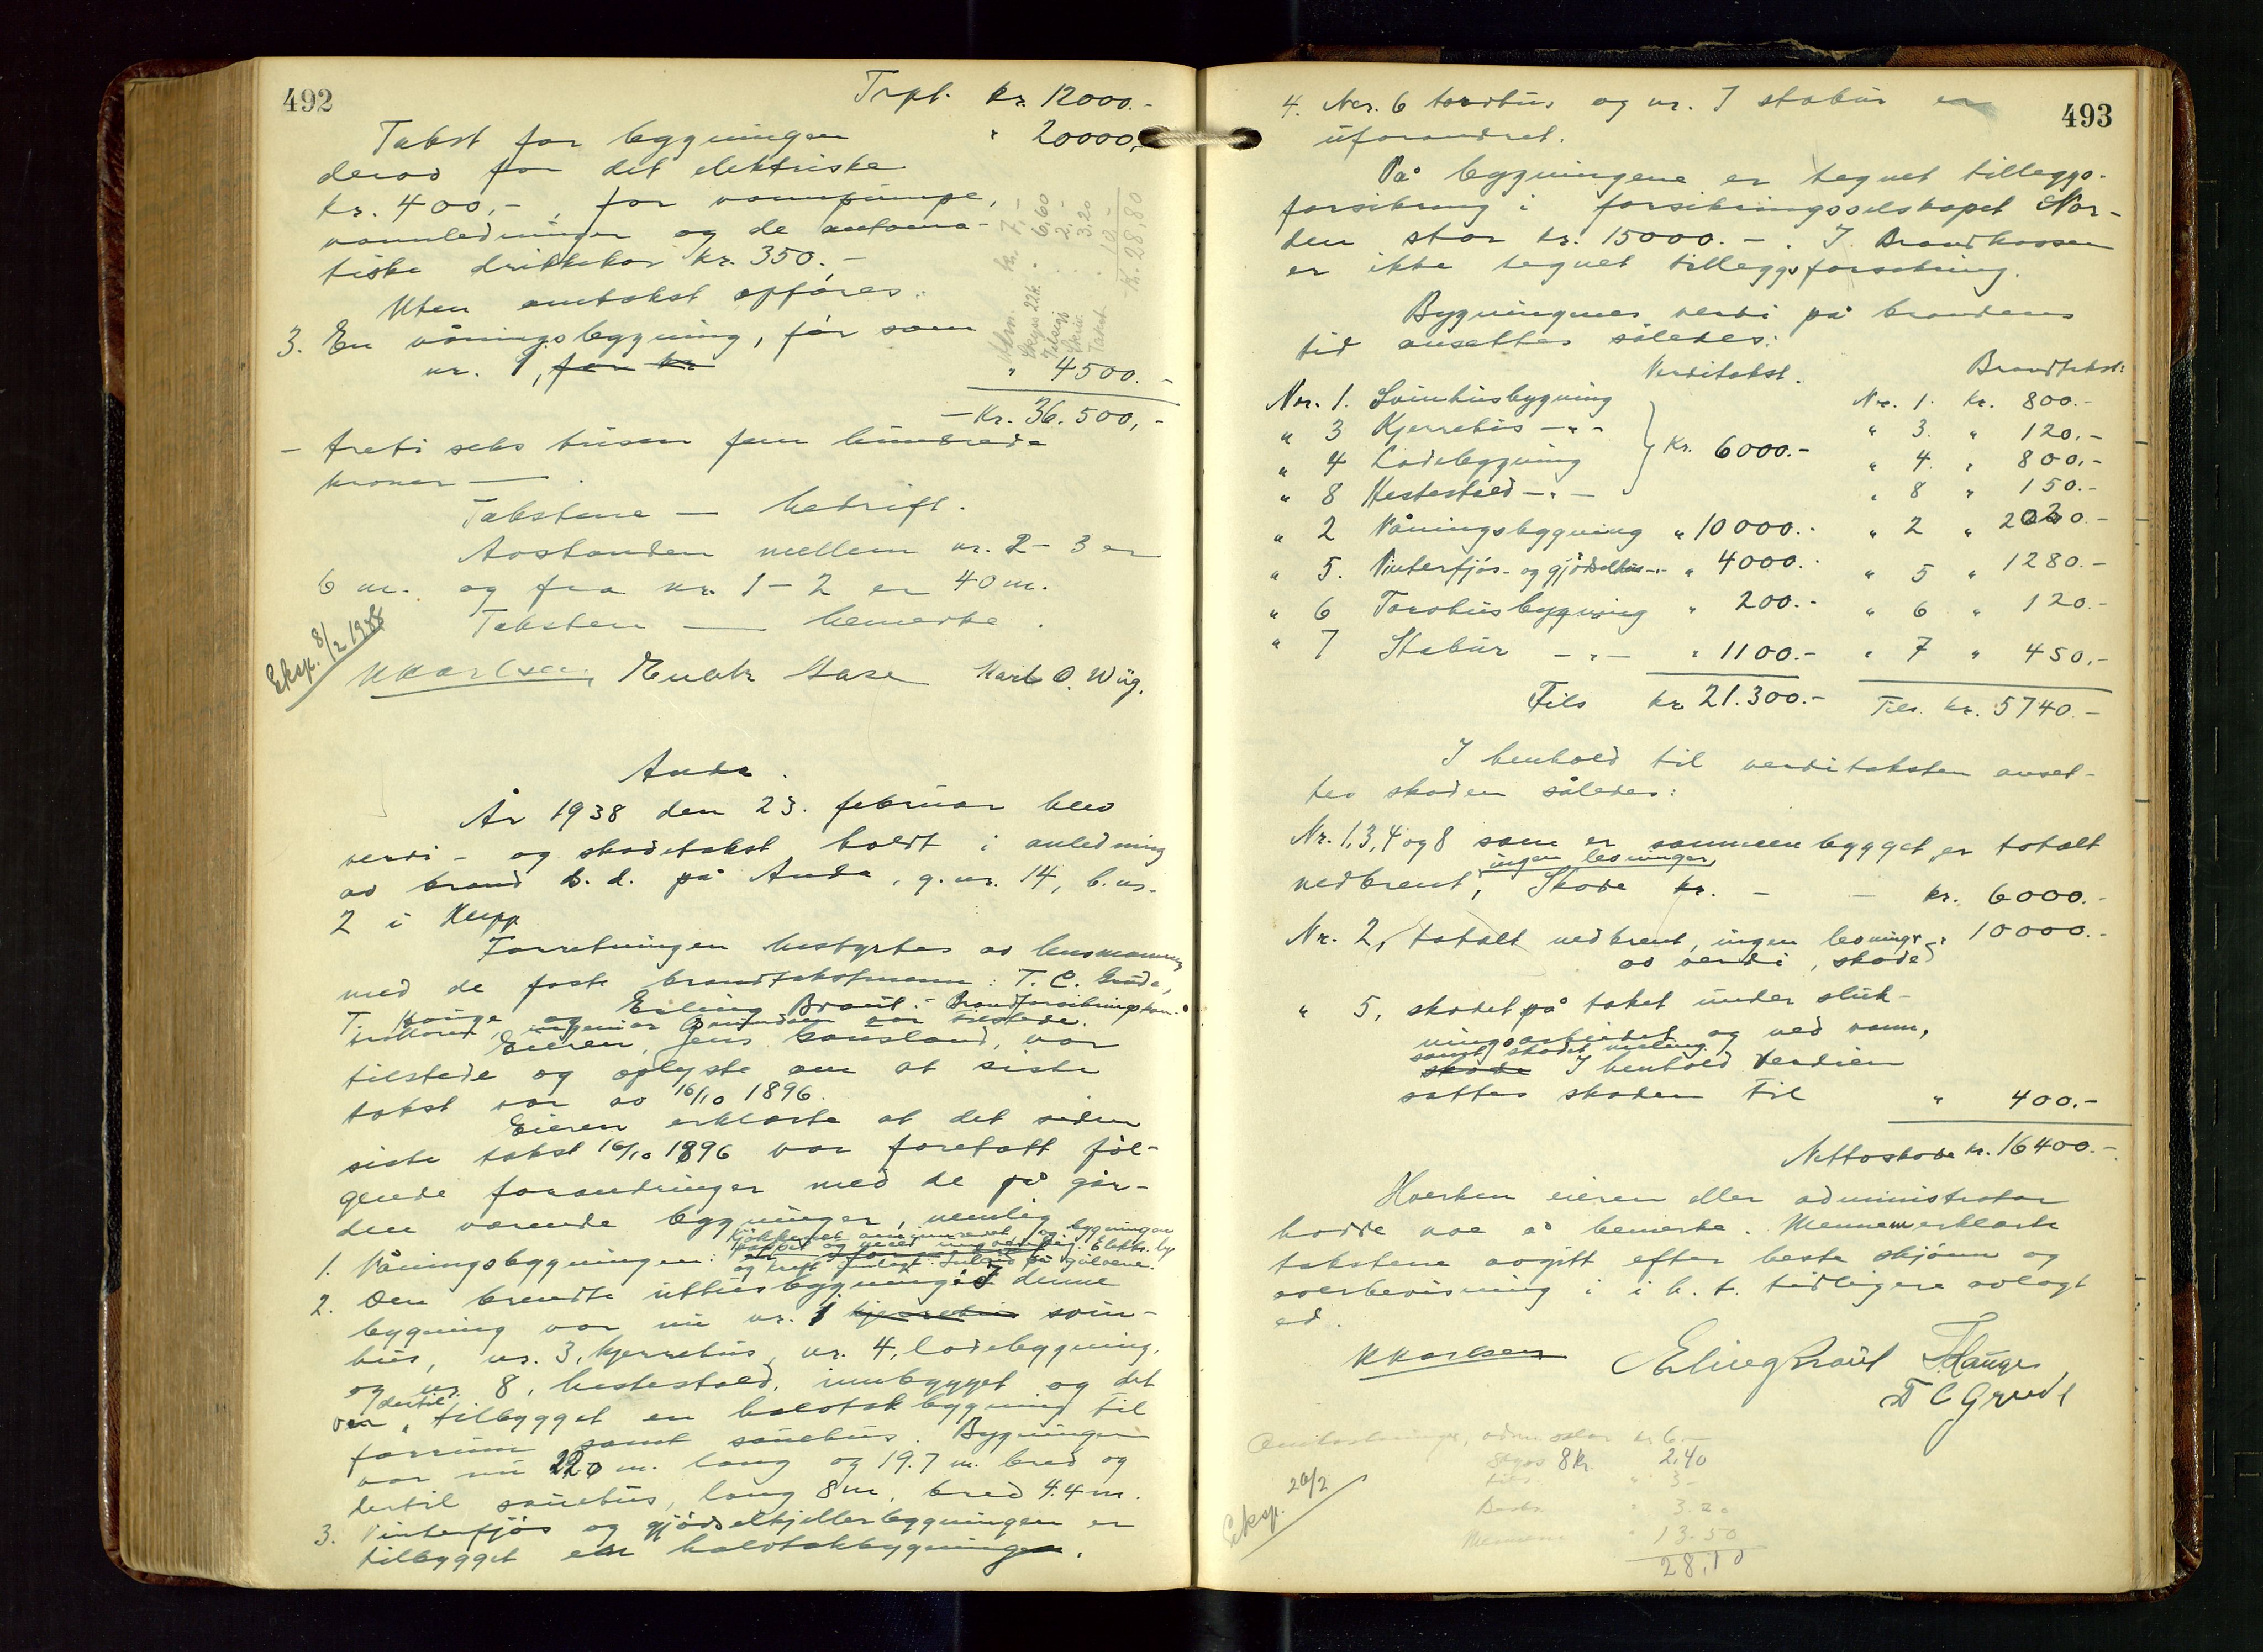 492
Trpt. kr. 12000.-
Takst for bygningen " 20000,-
derav for det elektriske
kr. 400,-, for vannpumpe,
vannledninger og de automa-
tiske drikkekar kr. 350,-
Uten omtakst opføres:
3. En våningsbygning, før som
nr. 1, for kr " 4500.-
- Kr. 36.500,-
- treti seks tusen fem hundrede
kroner -.
Takstene - bedrift.
Avstanden mellem nr. 2-3 er
6 m. og fra nr. 1-2 er 40 m.
Taksten - bemerke.
Eksp. 8/2 1938
K Karlsen, Karl O. Wiig.
kr. 7,-
Skyss 22k. " 6,60
" 2,-
Skriv. " 3.20
Takst " 10,-
Kr. 28,80
Anda.
År 1938 den 23. februar blev
verdi- og skadetakst holdt i anledning
av brand s.d. på Anda, g.nr. 14, b.nr.
2 i Klepp
Forretningen bestyrtes av lensmannen
med de faste brandtakstmenn: T. C. Grude,
T. Hauge og Erling Braut. - Brandforsikringskon-
trolløren, ingeniør var tilstede.
Eieren, Jens Gausland, var
tilstede og oplyste om at siste
takst var av 16/10 1896.
Eieren erklærte at det siden
siste takst 16/10 1896 var foretatt føl-
gende forandringer med de på går-
den værende bygninger, nemlig
kjøkkenet ominnredet og bygningen
pappet og utvendig. Elektr. lys
1. Våningsbygningen: er uforandret
og kraft innlagt. Inlaid på gulvene.
2. Den brendte uthusbygning: I denne
bygning var nu nr. 1 kjerrehus svin-
hus, nr. 3, kjerrehus, nr. 4, ladebygning,
og nr. 8, hestestald, innbygget og det
dertil
var tilbygget en halvtakbygning til
forrum samt sauehus. Bygningen
var nu 22.0 m. lang og 19.7 m. bred og
dertil sauehus, lang 8 m, bred 4.4 m.
3. Vinterfjøs og gjødselkjellerbygningen er
tilbygget en halvtakbygningen.
493
4. Nr. 6 torvhus og nr. 7 stabur er
uforandret.
På bygningene er tegnet tilleggs-
forsikring i forsikringsselskapet Nor-
den stor kr. 15000.-. I Brandkassen
er ikke tegnet tilleggsforsikring.
Bygningenes verdi på brandens
tid ansettes således:
Verditakst. Brandtakst:
Nr. 1. Svinhusbygning Nr. 1. kr. 800.-
" 3 Kjerrehus -"- " 3. " 120.-
" 4 Ladebygning } Kr. 6000.- " 4. " 800.-
" 8 Hestestald -"- " 8 " 150.-
" 2 Våningsbygning " 10000.- " 2 " 2020.-
" 5. Vinterfjøs- og gjødselhus-"- " 4000.- " 5 " 1280.-
" 6 Torvhusbygning " 200.- " 6 " 120.-
" 7 Stabur -"- " 1100.- " 7 " 450.-
Tils kr 21.300.- Tils. kr. 5740.-
I henhold til verditaksten anset-
tes skaden således:
Nr. 1,3,4 og 8 som er sammenbygget, er totalt
ingen levninger,
nedbrent, Skade kr. - - kr. 6000.-
Nr. 2, totalt nedbrent, ingen levninger " 10000.-
av verdi, skade
" 5, skadet på taket under sluk-
ningsarbeidet og ved vann,
samt skadet maling.
skade I henhold verdien
settes skaden til " 400.-
Nettoskade kr. 16400.-
Hverken eieren eller administrator
hadde noe å bemerke. Mennene erklærte
takstene avgitt efter beste skjønn og
overbevisning i i h. t. tidligere avlagt
ed.
K Karlsen Erling Braut T Hauge
T C Grude
Omkostninger, kr 6.-
Skyss 8 kr. 2,40
" 3-
" 3.20
Mennene " 13.50
28,10
Eksp. 26/2